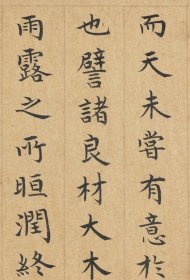 而天未嘗有意於
也譬諸良材大木
雨露之所晅潤終